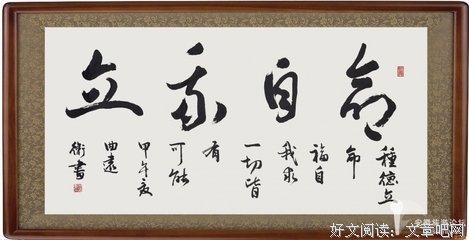 命自我立
種德立
命
福自
我求
一切皆
有
可能
甲午夏
曲遠
書
好文阅读：文章吧网